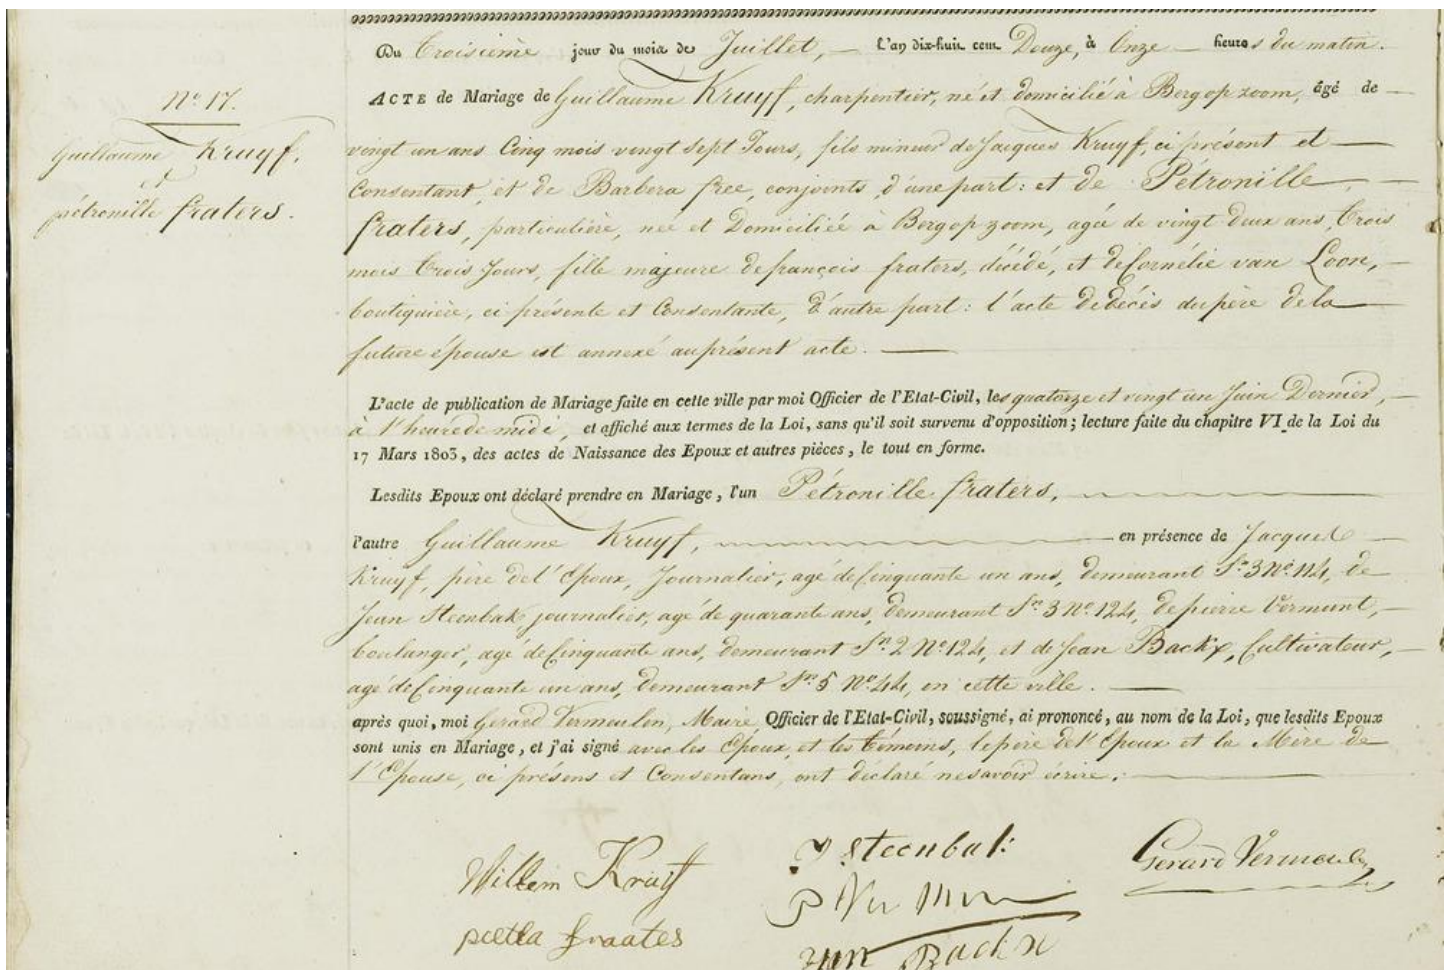 Du Troisième jour du mois de Juillet, l'an dix-huit cent Douze, à Onze heures du matin.
N.º 17.
Guillaume Kruyf,
et
pétronille fraters.
ACTE de Mariage de Guillaume Kruyf, charpentier, né et domicilié à Bergopzoom, âgé de
vingt un ans Cinq mois vingt Sept Jours, fils mineur de Jacques Kruyf, ci présent et
Consentant, et de Barbera free, conjoints, d'une part: et de Pétronille
fraters, particulière, née et Domiciliée à Bergopzoom, agée de vingt deux ans, Trois
mois Trois Jours, fille majeure de françois fraters, décédé, et de Cornélie van Loon,
boutiquière, ci présente et Consentante, d'autre part: l'acte de décès du père de la
future épouse est annexé au présent acte.
L'acte de publication de Mariage faite en cette ville par moi Officier de l'Etat-Civil, les quatorze et vingt un Juin Dernier,
à l'heure de midi, et affiché aux termes de la Loi, sans qu'il soit survenu d'opposition; lecture faite du chapitre VI de la Loi du
17 Mars 1803, des actes de Naissance des Epoux et autres pièces, le tout en forme.
Lesdits Epoux ont déclaré prendre en Mariage, l'un Pétronille fraters,
l'autre Guillaume Kruyf, en présence de Jacques
Kruyf, père de l'Epoux, Journalier, agé de Cinquante un ans, demeurant S.n 3 N.º 114, de
Jean Steenbak, journalier, agé de quarante ans, demeurant S.n 3 N.º 124, de pierre Vermunt,
boulanger, agé de Cinquante ans, demeurant S.n 2 N.º 124, et de Jean Backx, Cultivateur,
agé de Cinquante un ans, demeurant S.n 5 N.º 44, en cette ville.
après quoi, moi Gerard Vermeulen, Maire Officier de l'Etat-Civil, soussigné, ai prononcé, au nom de la Loi, que lesdits Epoux
sont unis en Mariage, et j'ai signé avec les Epoux, et les témoins, le père de l'Epoux et la Mère de
l'Epouse, ci présens et Consentans, ont déclaré ne savoir écrire.
Willem Kruyf
J Steenbak
Gerard Vermeulen
pietta fraates
P Ver
Jan Backx